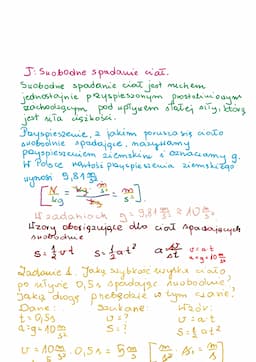 T: Swobodne spadanie ciał.
Swobodne spadanie ciał jest ruchem
jednostajnie przyspieszonym prostoliniowym
zachodzącym pod wpływem stałej siły, którą
jest siła ciężkości.
Przyspieszenie, z jakim porusza się ciało
swobodnie spadające, nazywamy
przyspieszeniem ziemskim i oznaczamy g.
W Polsce wartość przyspieszenia ziemskiego
wynosi 9,81 m/s²
[N/kg = kg · m/s² / kg = m/s²]
W zadaniach g = 9,81 m/s² ≈ 10 m/s²
Wzory obowiązujące dla ciał spadających
swobodnie
s = 1/2 v t s = 1/2 a t² a = Δv/t v = a · t
a = g = 10 m/s²
Zadanie 1. Jaką szybkość uzyska ciało,
po upływie 0,5 s spadając swobodnie,
jaką drogę przebędzie w tym czasie?
Dane: Szukane: Wzór:
t = 0,5 s v = ? v = a · t
a = g = 10 m/s² s = ? s = 1/2 a t²
v = 10 m/s² · 0,5 s = 5 m/s [m/s² · s = m/s]